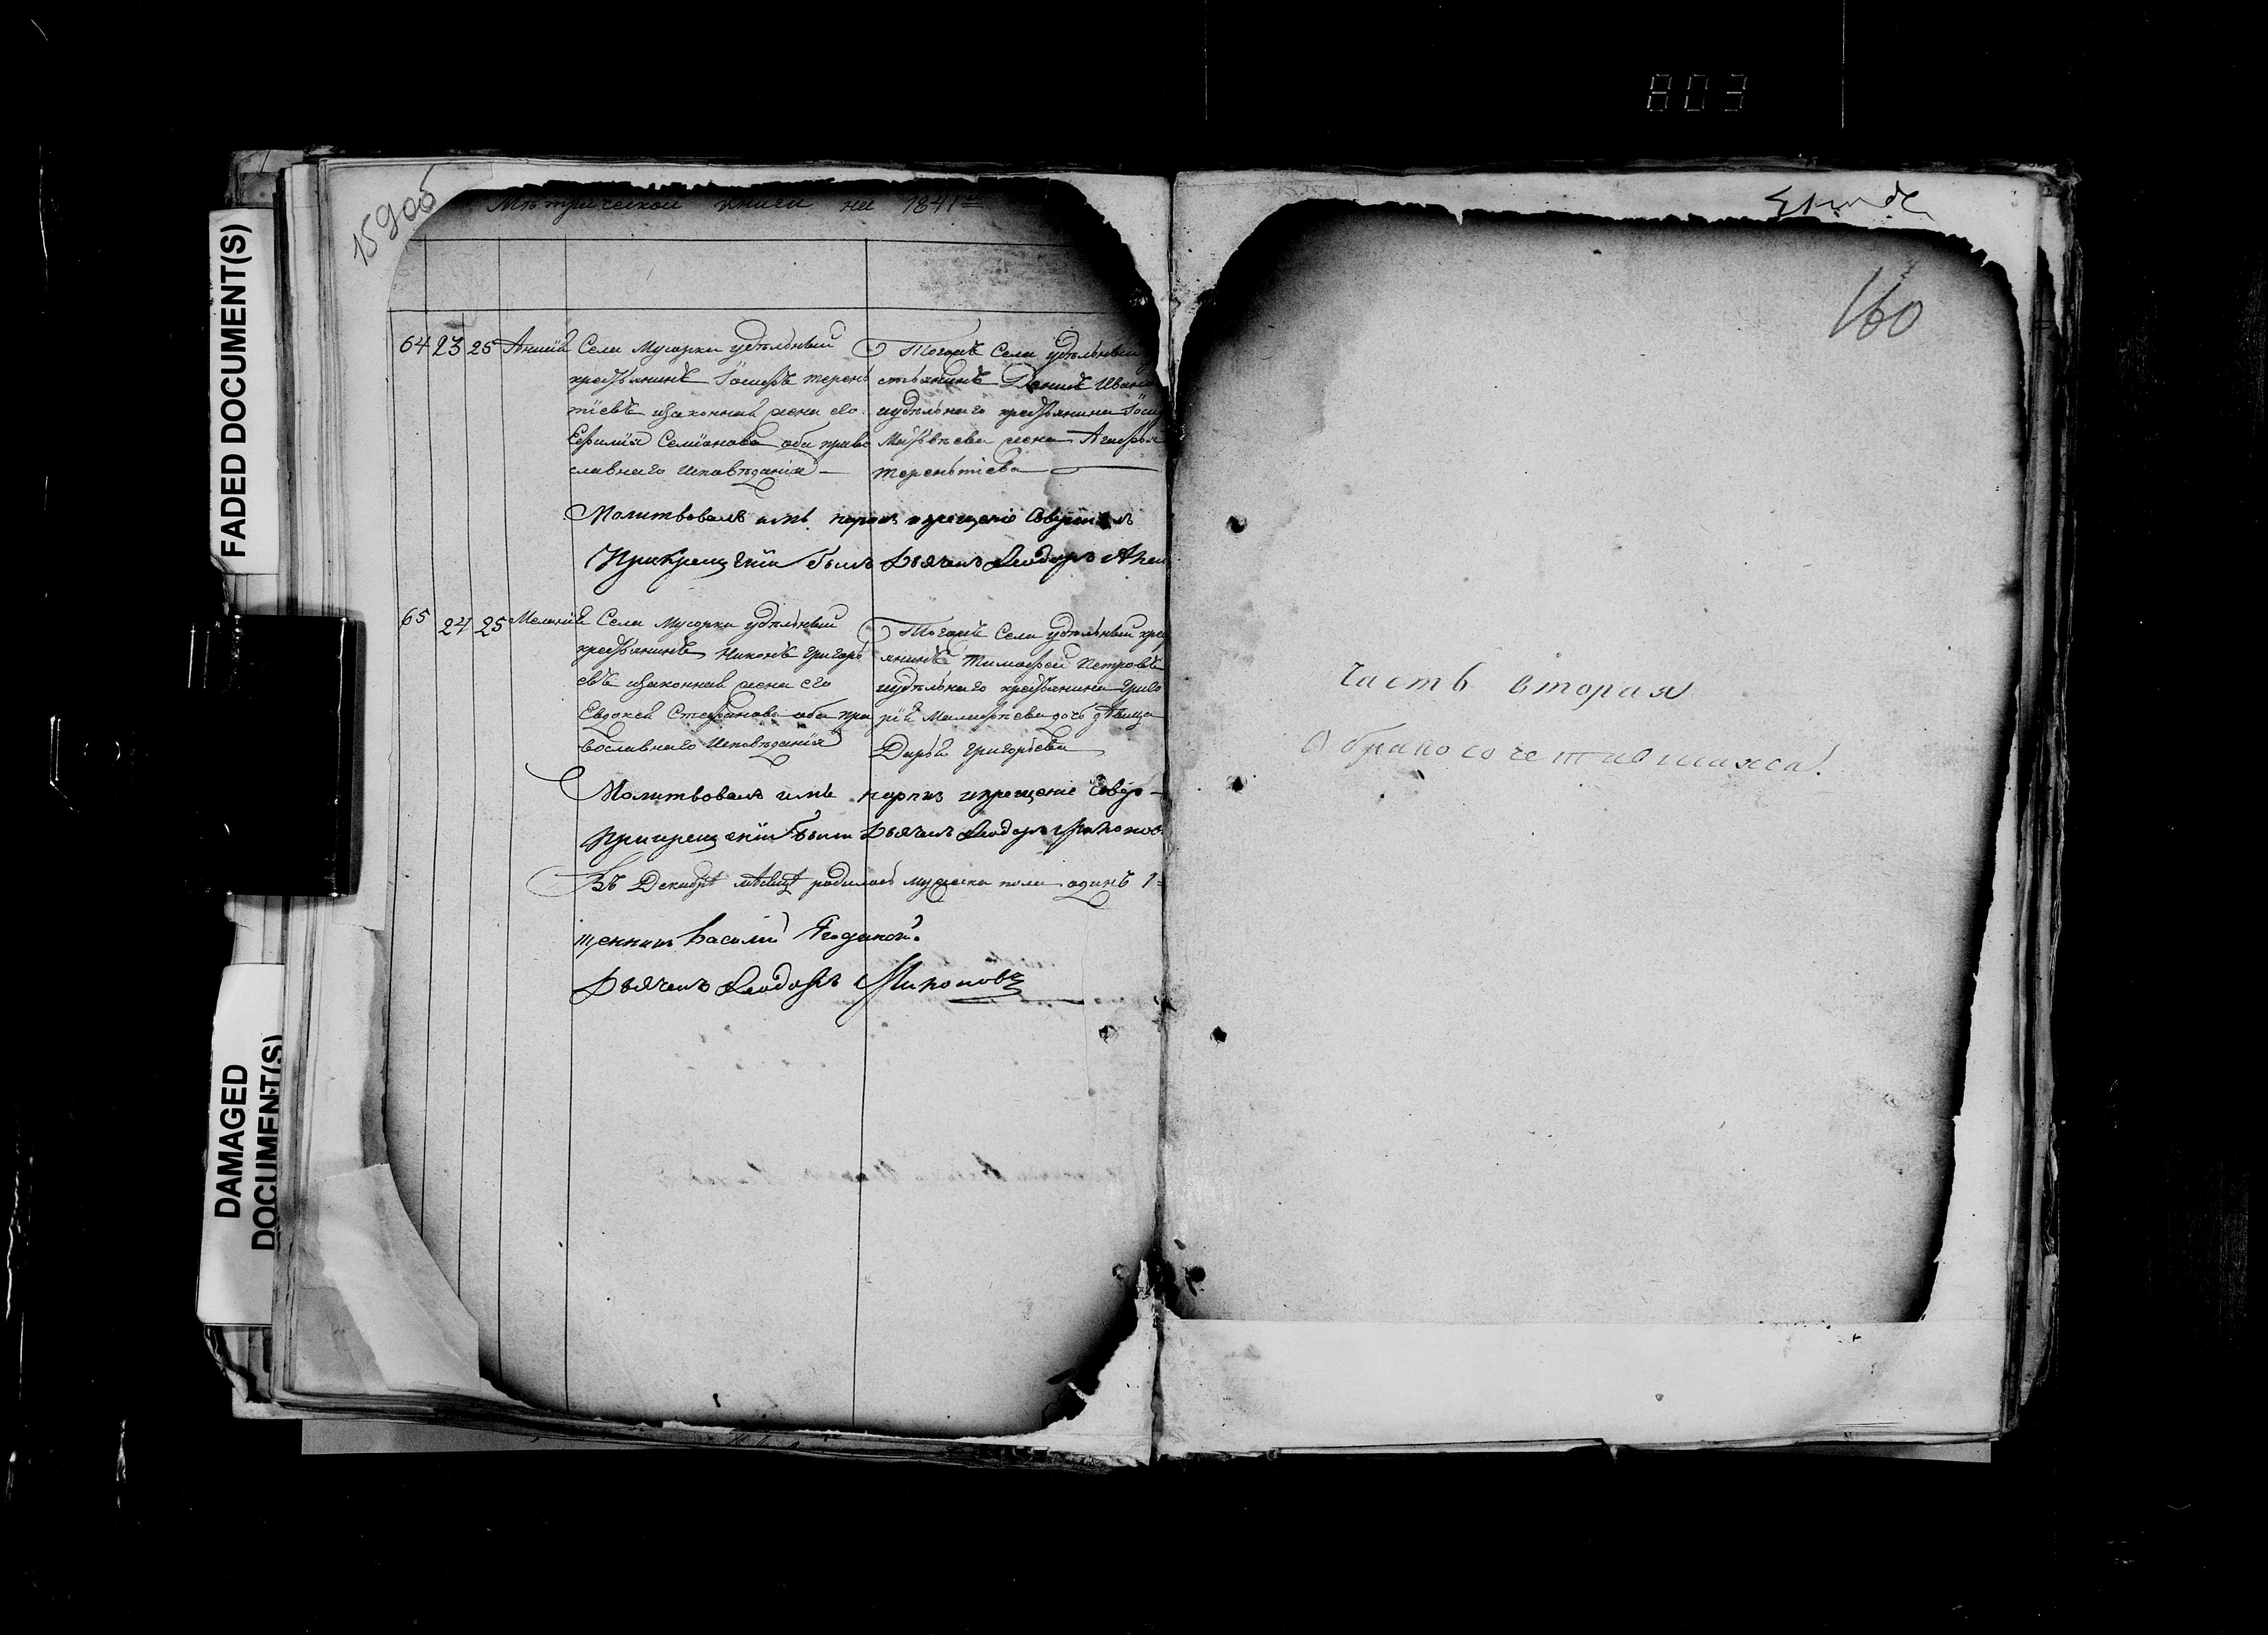 803
FADED DOCUMENT(S)
DAMAGED DOCUMENT(S)
159об
Метрической книги на 1841
64 23 25 Анисiя Села Мусорки удѣльный
крестьянинъ Iосифъ терень
тiевъ изаконная жена его
Ефимiя Семiонова оба право
славнаго Исповѣданiя
Тогожъ Села удѣльный
стьянинъ Данiилъ Ивано
иудѣльнаго крестьянина Iоси
Матвѣева жена Агафья
терентiева
Молитвовалъ имя нарекъ крещенiе Соверши лъ
Прикрещенiи былъ Дьячекъ Феодоръ
65 24 25 Меланiя Села Мусорки удѣльный
крестьянинъ Никонъ григорь
евъ изаконная жена его
Евдокея Стефанова оба пра
вославнаго Исповѣданiя
Тогожъ Села удѣльный крес
янинъ Тимофей Петровъ
иудѣльнаго крестьянина григо
рiя дочь дѣвица
Дарья григорьева
Молитвовалъ имя нарекъ икрещенiе Совер
прикрещенiи были Дьячекъ Феодоръ
Въ Декабрѣ мѣсяцѣ родилось мужеска пола одинъ 1
щенникъ Василiй Ягодиной.
Дьячекъ Феодоръ Миконовъ
160
Часть вторая
О бракосочетавшихся.